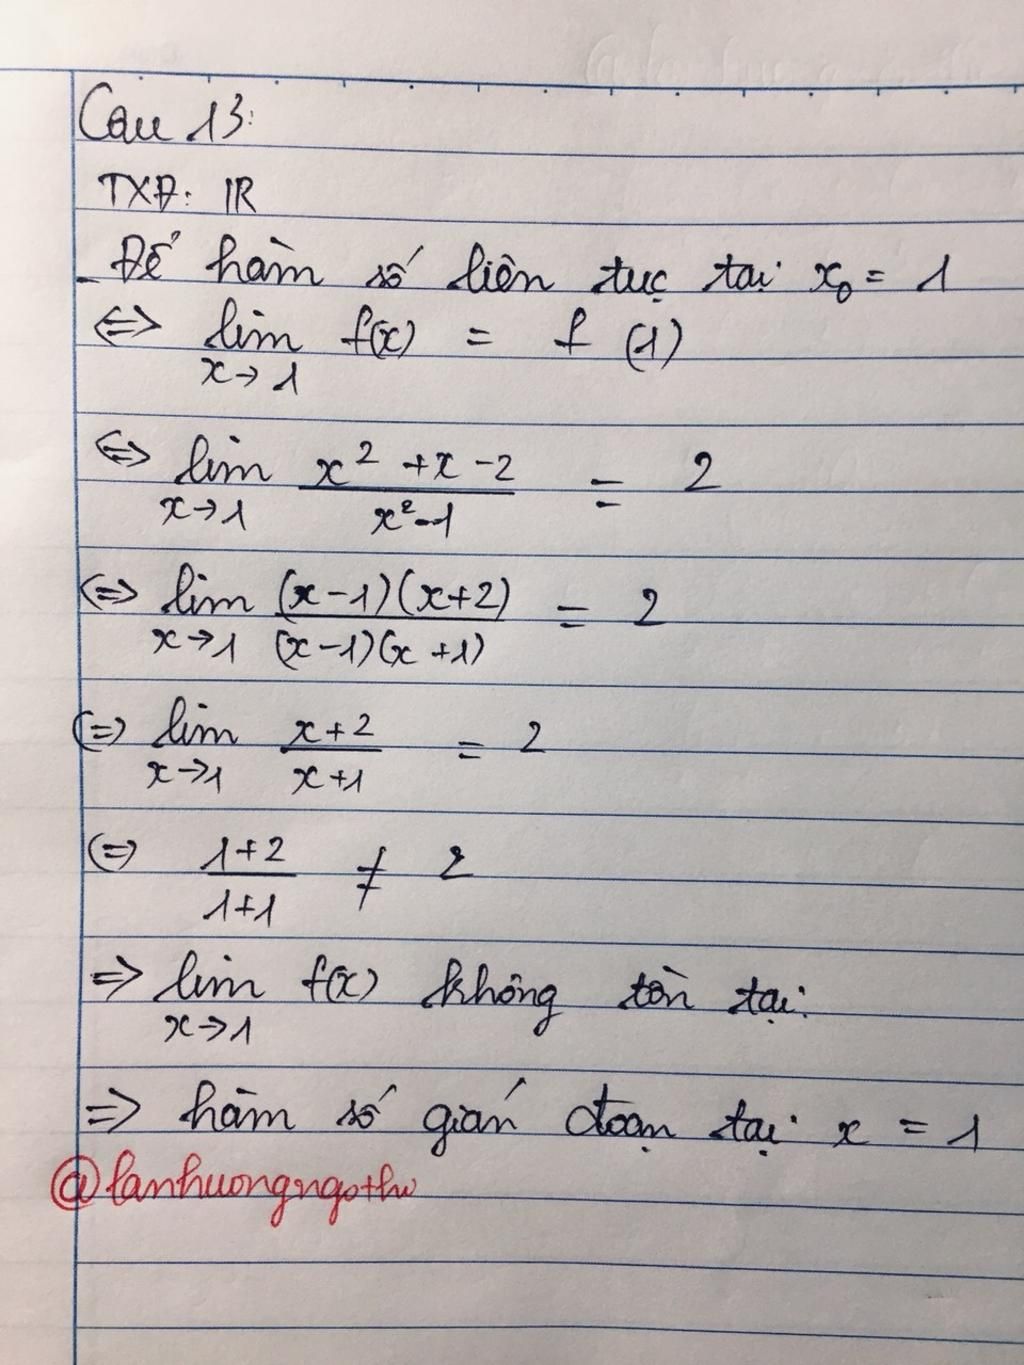 Câu 13:
TXĐ: IR
- Để hàm số liên tục tại x₀ = 1
<=> lim f(x) = f (1)
x→1
<=> lim x² + x - 2 = 2
x→1 x² - 1
<=> lim (x-1)(x+2) = 2
x→1 (x-1)(x+1)
(=) lim x+2 = 2
x→1 x+1
(=) 1+2 ≠ 2
1+1
=> lim f(x) không tồn tại.
x→1
=> hàm số gián đoạn tại x = 1
@lanhuongngothw